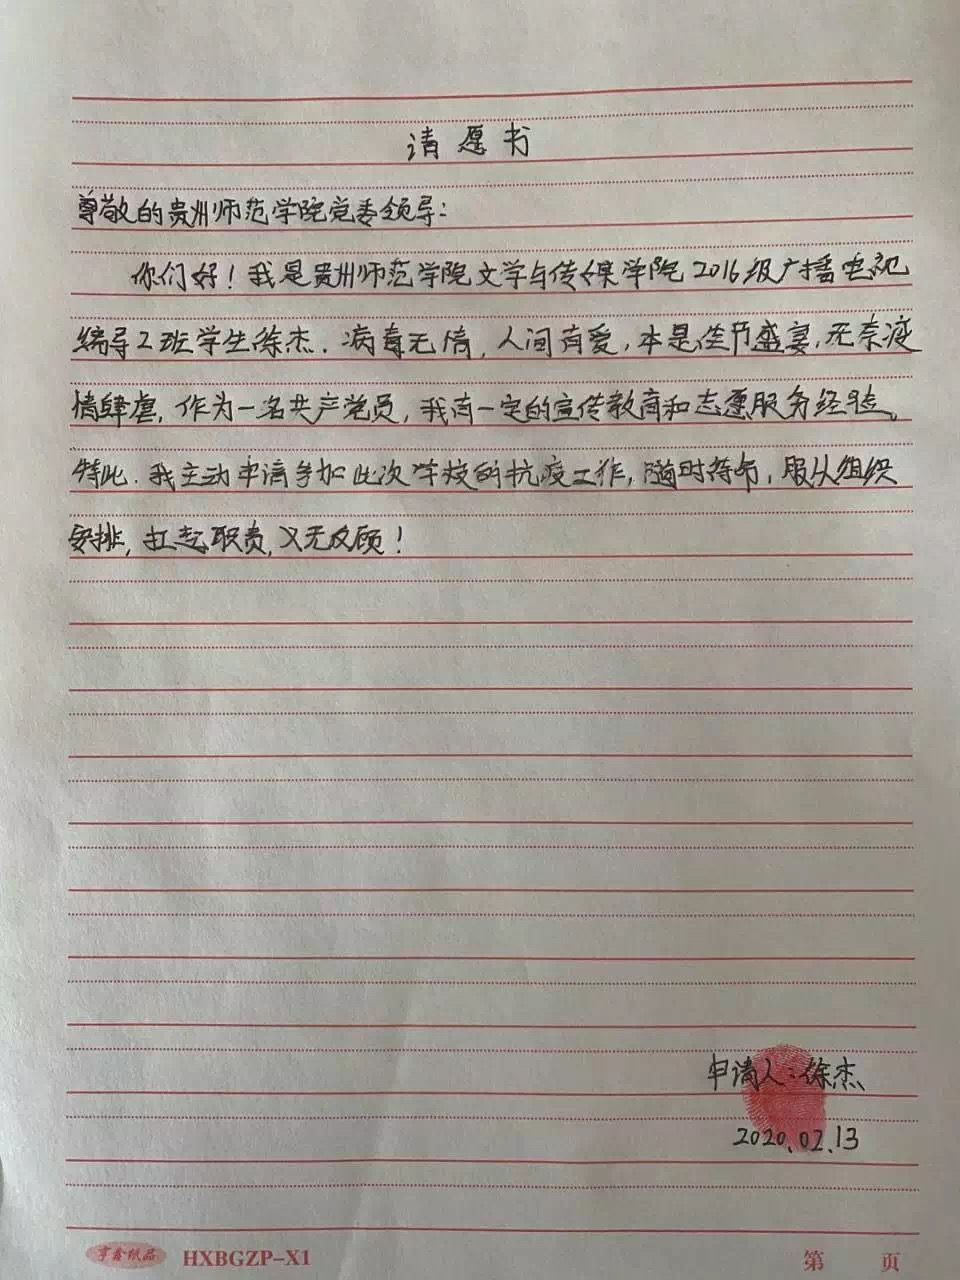 请愿书
尊敬的贵州师范学院党委领导：
你们好！我是贵州师范学院文学与传媒学院2016级广播电视
编导2班学生徐杰.病毒无情,人间有爱,本是佳节盛宴,无奈疫
情肆虐,作为一名共产党员,我有一定的宣传教育和志愿服务经验。
特此.我主动申请参加此次学校的抗疫工作,随时待命,服从组织
安排,扛起职责,义无反顾！
申请人：徐杰
2020.02.13
亨鑫纸品 HXBGZP-X1 第 页